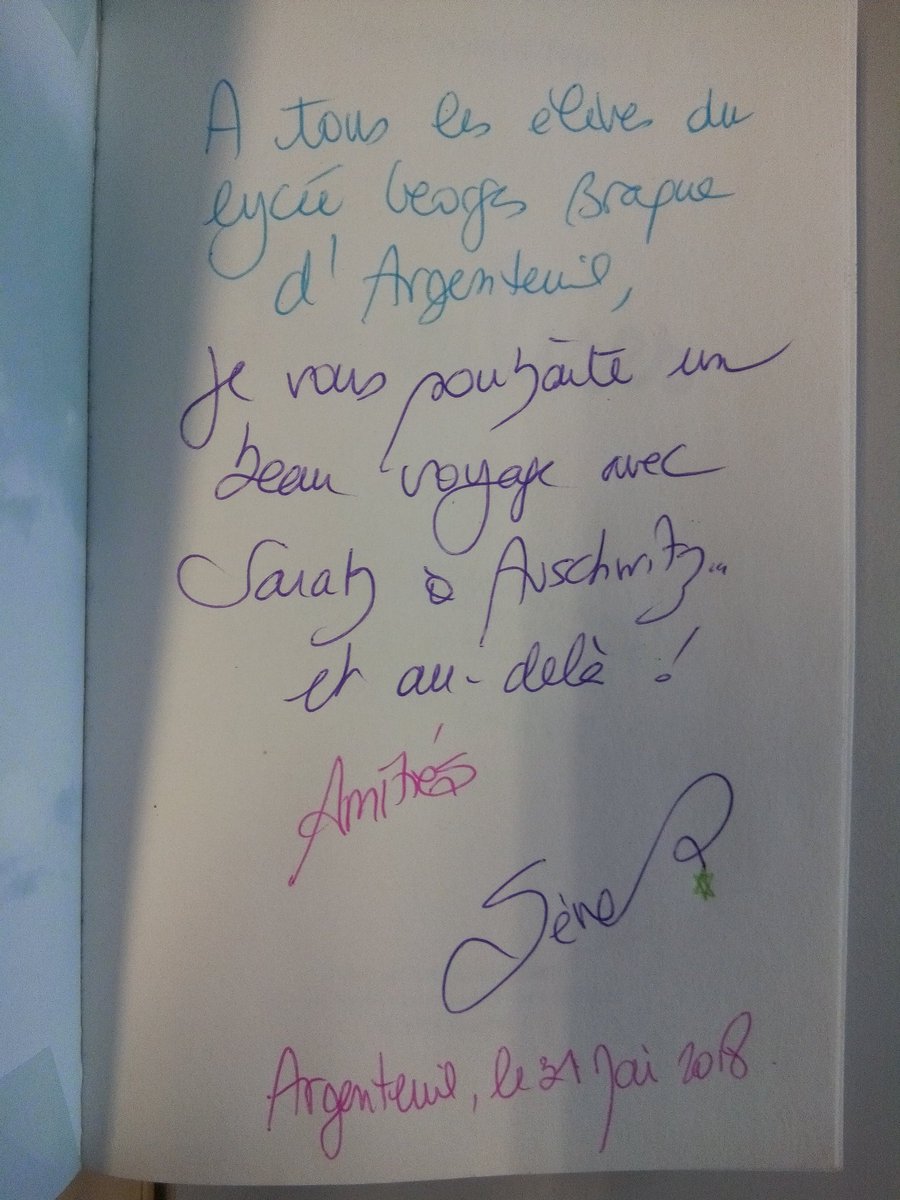 A tous les élèves du
lycée Georges Braque
d'Argenteuil,
Je vous souhaite un
beau voyage avec
Sarah à Auschwitz...
et au-delà !
Amitiés
Argenteuil, le 31 Mai 2018.